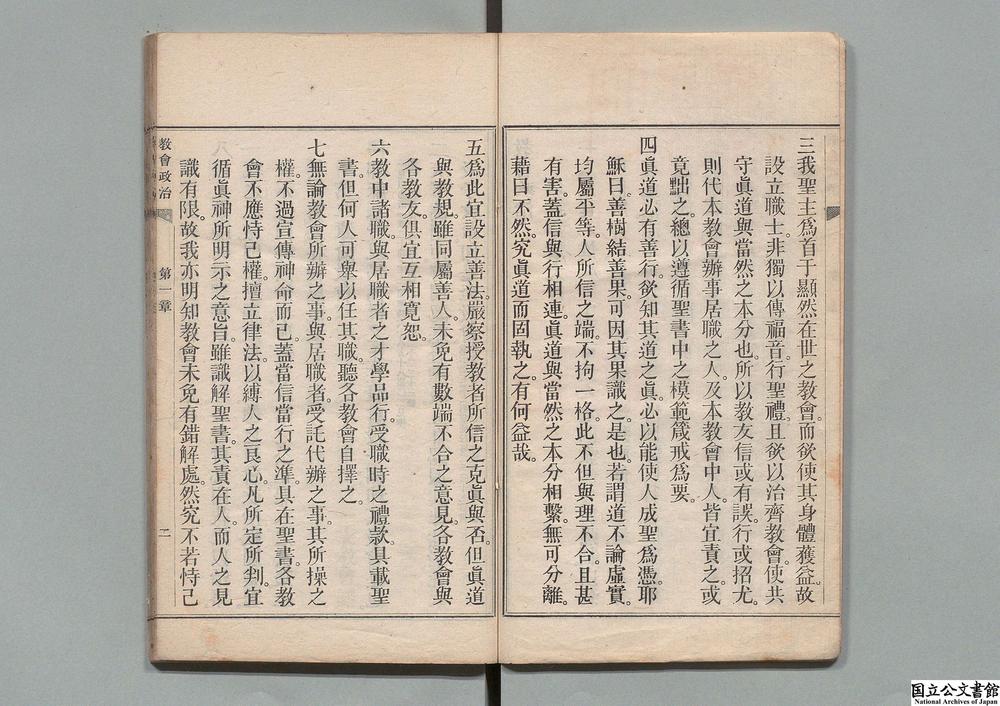 三我聖主爲首于顯然在世之教會。而欲使其身體獲益。故
設立職士。非獨以傳福音。行聖禮。且欲以治齊教會。使共
守眞道與當然之本分也。所以教友信或有誤。行或招尤。
則代本教會辦事居職之人。及本教會中人。皆宜責之。或
竟黜之。總以遵循聖書中之模範箴戒爲要。
四眞道必有善行。欲知其道之眞。必以能使人成聖爲憑。耶
穌曰。善樹結善果。可因其果識之。是也。若謂道不論虛實。
均屬平等。人所信之端。不拘一格。此不但與理不合。且甚
有害。蓋信與行相連。眞道與當然之本分相繫。無可分離。
藉曰不然。究眞道而固執之。有何益哉。
五爲此宜設立善法。嚴察授教者所信之克眞與否。但眞道
與教規。雖同屬善人。未免有數端不合之意見。各教會與
各教友。俱宜互相寬恕。
六教中諸職。與居職者之才學品行。受職時之禮款。具載聖
書。但何人可舉以任其職。聽各教會自擇之。
七無論教會所辦之事。與居職者。受託代辦之事。其所操之
權。不過宣傳神命而已。蓋當信當行之準。具在聖書。各教
會不應恃己權。擅立律法。以縛人之良心。凡所定所判。宜
循眞神所明示之意旨。雖識解聖書。其責在人。而人之見
識有限。故我亦明知教會未免有錯解處。然究不若恃己
教會政治
第一章
二
国立公文書館
National Archives of Japan